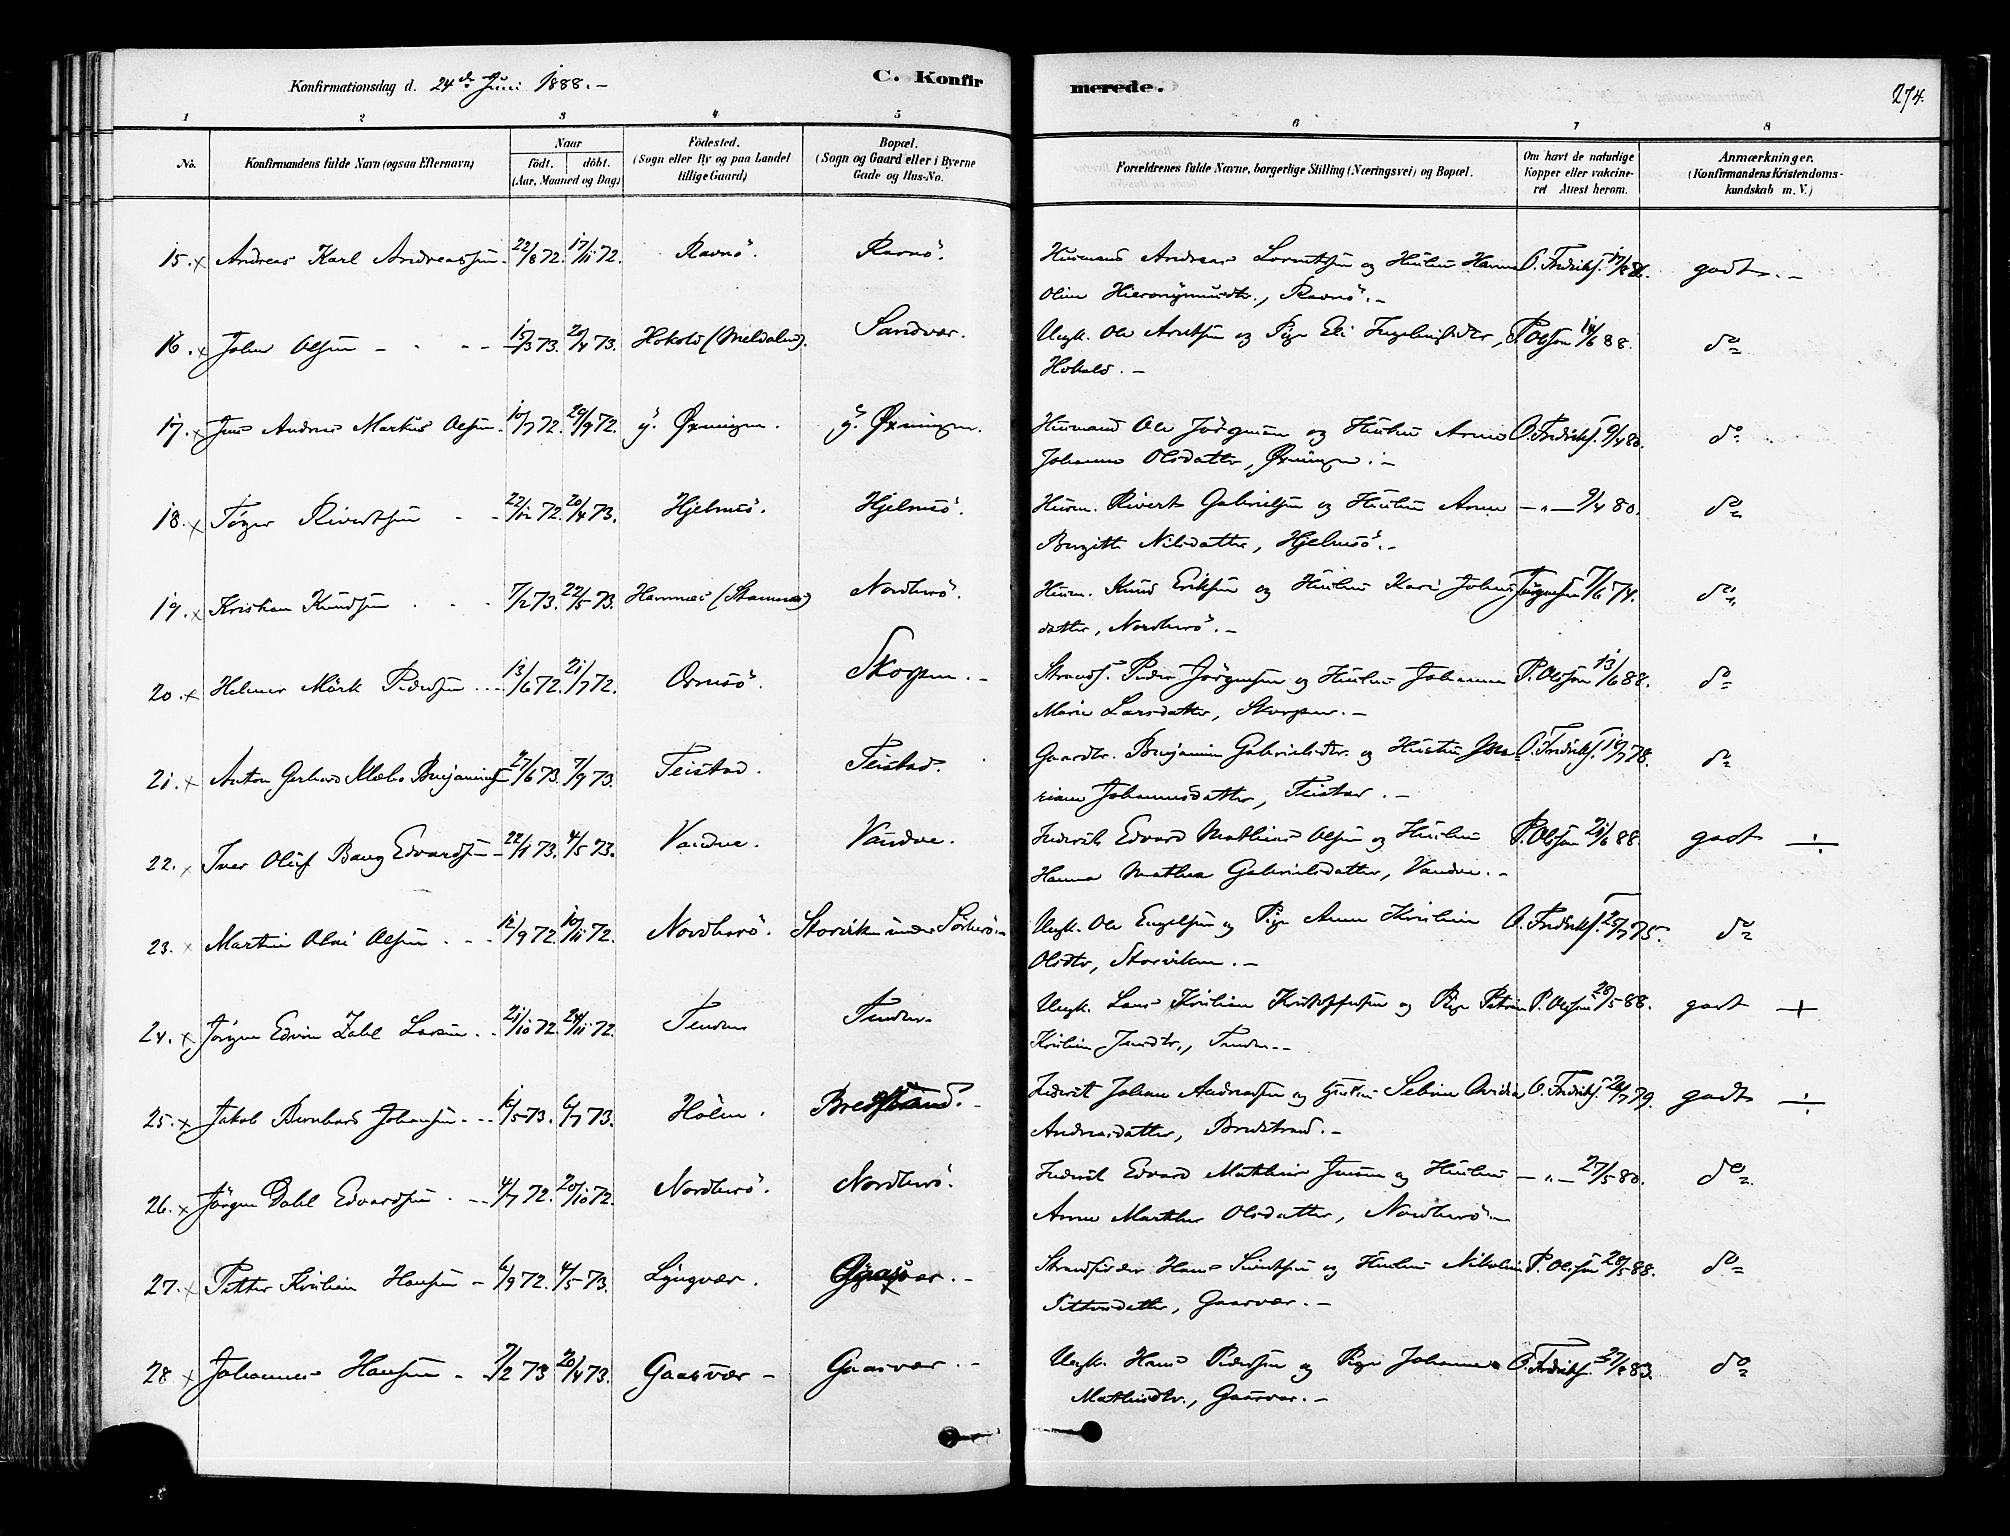 Konfirmationsdag d. 24de Juni 1888. –
C. Konfirmerede.
274.
1 2 3 4 5 6 7 8
No.
Konfirmandens fulde Navn (ogsaa Efternavn)
Naar
födt. döbt.
(Aar, Maaned og Dag)
Födested.
(Sogn eller By og paa Landet
tillige Gaard)
Bopæl.
(Sogn og Gaard eller i Byerne
Gade og Hus-No.
Forældrenes fulde Navne, borgerlige Stilling (Næringsvei) og Bopæl.
Om havt de naturlige
Kopper eller vakcine-
ret Attest herom.
Anmærkninger.
(Konfirmandens Kristendoms-
kundskab m. V.)
15. x Andreas Karl Andreassen. 22/8 72. 17/11 72. Ravnö. Ravnö. Husmand Andreas Lorntsen og Hustru Hanna O. Fredriks. godt. –
Oline Hieronymusdtr., Ravnö. –
16. x Johan Olsen – 15/3 73. 20/4 73. Hokold (Meldalen). Sandvær. Ungk. Ole Arntsen og Pige Eli Ingebrigtsdtr, P. Olsson 14/6 88. do
Hokold. –
17. x Jens Andreas Markus Olsen. 10/7 72. 29/9 72. y. Øxningen. y. Øxningen. Husmand Ole Jörgensen og Hustru Anne O. Fredriks. 9/4 80. do
Johanna Olsdatter, Øxningen. –
18. x Töger Rivertsen 22/12 72. 20/4 73. Hjelmsö. Hjelmsö. Husm. Rivert Gabrielsen og Hustru Anne – " – 9/4 80. do
Bergitte Nilsdatter, Hjelmsö. –
19. x Kristian Knudsen 7/2 73. 22/5 73. Hamnes (Stamnes) Nordherö. Husm. Knud Eriksen og Hustru Kari Johns Jörgensen 7/6 74. do
datter, Nordherö. –
20. x Helmer Mörk Pedersen 13/6 72. 21/7 72. Ormsö. Skorpen. – Strands. Peder Jörgensen og Hustru Johanna P. Olsson 13/6 88. do
Marie Larsdatter, Skorpen. –
21. x Anton Gerhard Klæbo Benjamins. 27/6 73. 7/9 73. Teistad. Teistad. Gaardbr. Benjamin Gabrielsen og Hustru Ma- O. Fredriks. 19/7 78. do
riane Johannesdatter, Teistad. –
22. x Iver Oluf Bang Edvardsen – 22/1 73. 4/5 73. Vandve. Vandve. Inderst Edvard Mathias Olsen og Hustru P. Olsson 21/6 88. godt ÷
Hanna Mathea Gabrielsdatter, Vandve. –
23. x Martin Olai Olsen 12/9 72. 10/11 72. Nordherö. Storviken under Sörherö. – Ungk. Ole Engelsen og Pige Anne Kristine O. Fredriks. 25/7 75. do
Olsdtr, Storviken. –
24. x Jörgen Edvin Zahl Larsen 21/10 72. 24/11 72. Tenden Tenden Ungk. Lars Kristian Kristoffersen og Pige Petrine P. Olsson 28/5 88. godt +
Kristine Jensdtr., Tenden. –
25. x Jakob Bernhard Johansen. 16/5 73. 6/7 73. Holm. Bredstrand. – Inderst Johan Andreassen og Hustru Sebine Ovidia O. Fredriks. 24/7 79. godt ÷
Andreasdatter, Bredstrand. –
26. x Jörgen Dahl Edvardsen 4/7 72. 20/10 72. Nordherö. Nordherö. Inderst Edvard Mathias Jensen og Hustru – " – 27/5 80. do
Anne Marthe Olsdatter, Nordherö –
27. x Petter Kristian Hansen – 6/9 72. 4/5 73. Lyngvær. Gaasvær. – Strandsidder Hans Simtsen og Hustru Nikoline P. Olsson 28/5 88. do
Pettersdatter, Gaasvær. –
28. x Johannes Hansen – 7/2 73 20/4 73. Gaasvær – Gaasvær. – Ungk. Hans Pedersen og Pige Johanna O. Fredriks. 27/8 83. do
Mathisdtr., Gaasvær. –